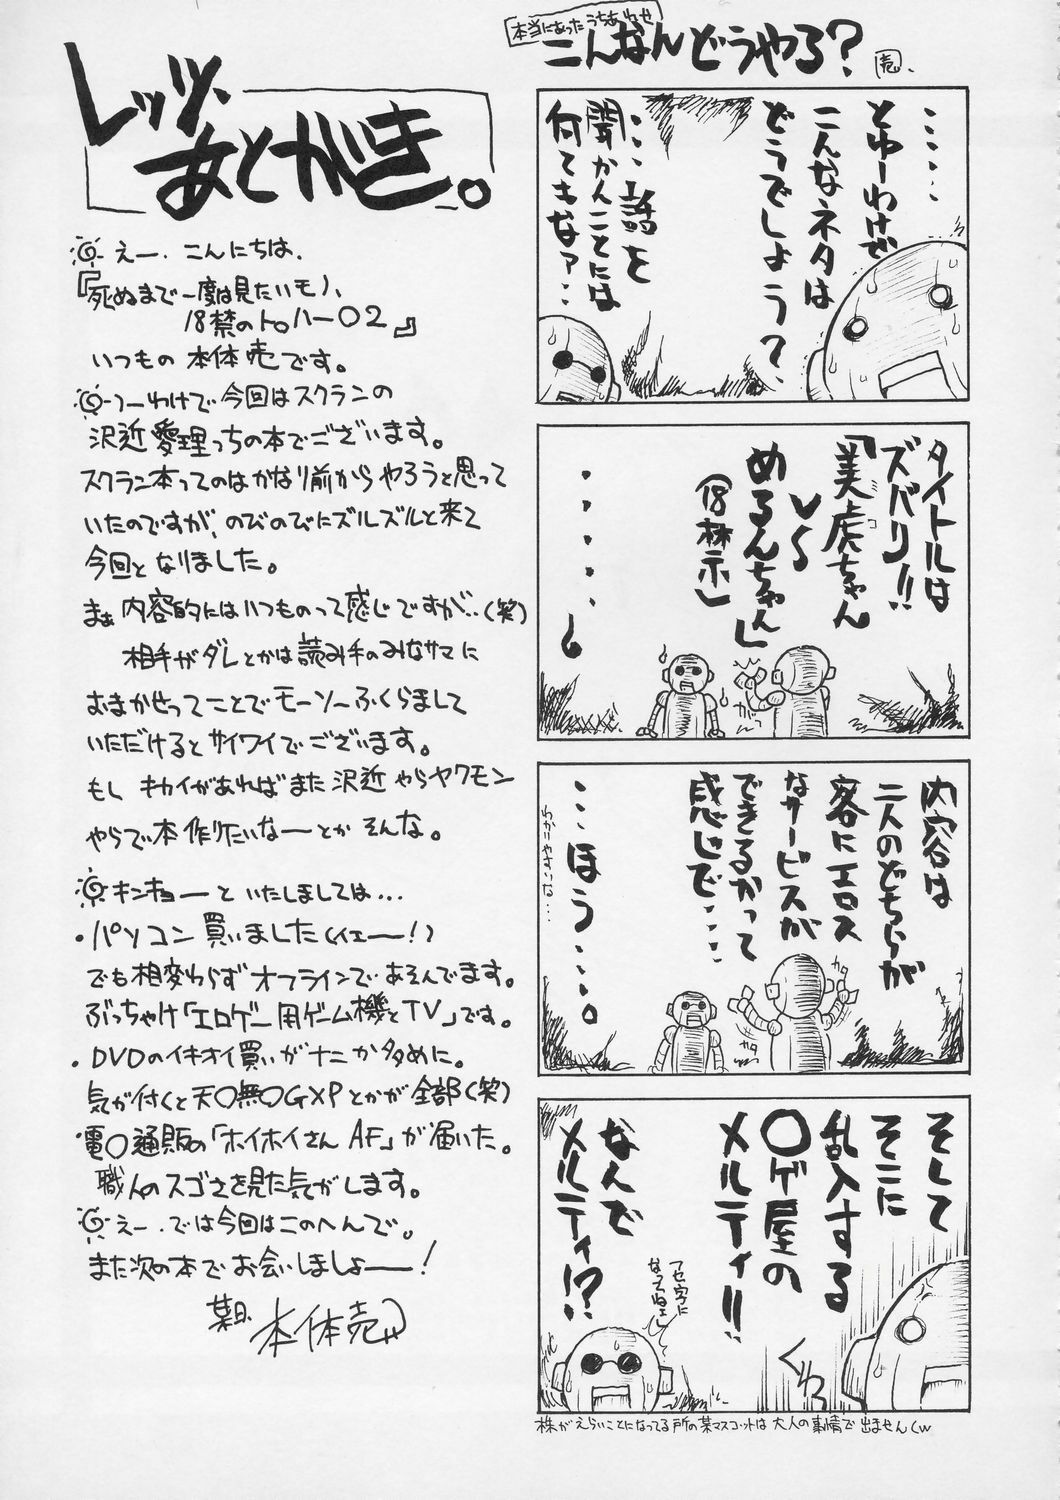 本当にあったうちあわせ
こんなんどうやる?
売.
‥‥‥
とゆーわけで
こんなネタは
どうでしょう?
‥‥話を
聞かんことには
何てもなァ‥‥
タイトルは
ズバリ!!
「美虎ちゃん
ミコ
VS
めるんちゃん」
(18禁)
・・・・・・
内容は
二人のどちらが
客にエロス
なサービスが
できるかって
感じで・・・・
‥‥ほう‥‥。
わかりやすいな…
カタ
カタ
そして
そこに
乱入する
〇ゲ屋の
メルティ!!
なんで
メルティ!?
フセ字に
なってねェ
ぐわっ
株がえらいことになってる所の某マスコットは大人の事情で出ませんくw
レッツ、
あとがき。
えー、こんにちは、
『死ぬまで一度は見たいモノ、
18禁のトロハー02』
いつもの本体売です。
つーわけで今回はスクランの
沢近愛理っちの本でございます。
スクラン本ってのはかなり前からやろうと思って
いたのですが、のびのびにズルズルと来て
今回となりました。
まぁ内容的にはいつものって感じですが‥(笑)
相手がダレとかは読み手のみなサマに
おまかせってことでモーソーふくらまして
いただけるとサイワイでございます。
もし キカイがあればまた沢近やらヤクモン
やらで本作りたいなーとかそんな。
キンキョーといたしましては…
・パソコン買いました(イエー!)
でも相変わらずオフラインであそんでます。
ぶっちゃけ「エロゲー用ゲーム機とTV」です。
・DVDのイキオイ買いがナニか多めに。
気が付くと天〇無〇GXPとかが全部(笑)
電〇通販の「ホイホイさんAF」が届いた。
職人のスゴさを見た気がします。
えー、では今回はこのへんで。
また次の本でお会いしましょー!
某日、本体売